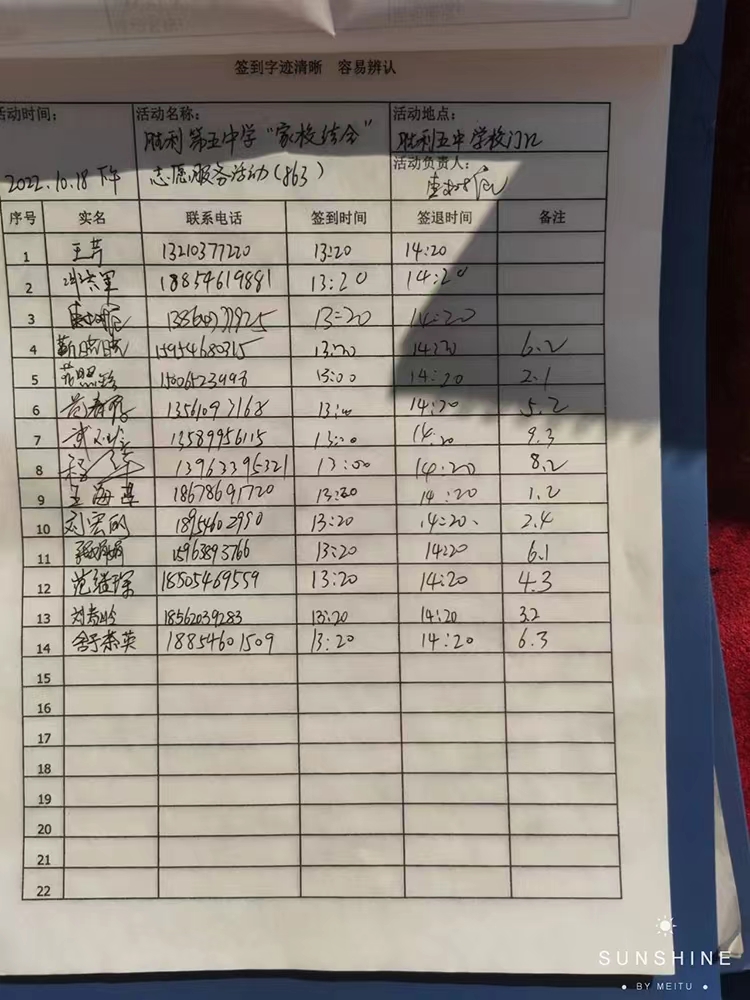 签到字迹清晰 容易辨认
活动时间： 活动名称： 活动地点：
胜利第五中学“家校结合” 胜利五中学校门口
活动负责人：
2022.10.18 下午 志愿服务活动(863)
序号 实名 联系电话 签到时间 签退时间 备注
1 王芹 13210377220 13:20 14:20
2 18854619881 13:20 14:20
3 13:20 14:20
4 靳晓晓 15954680315 13:20 14:20 6.2
5 13:00 14:20 2.1
6 14:20 5.2
7 13589956115 14:20 9.3
8 13963395321 13:00 14:20 8.2
9 18678691720 14:20 1.2
10 刘宏丽 13:20 14:20、 2.4
11 15963893766 13:20 14:20 6.1
12 范继琛 18505469559 13:20 14:20 4.3
13 18562039283 13:20 14:20 3.2
14 舒常英 18854601509 13:20 14:20 6.3
15
16
17
18
19
20
21
22
SUNSHINE
BY MEITU